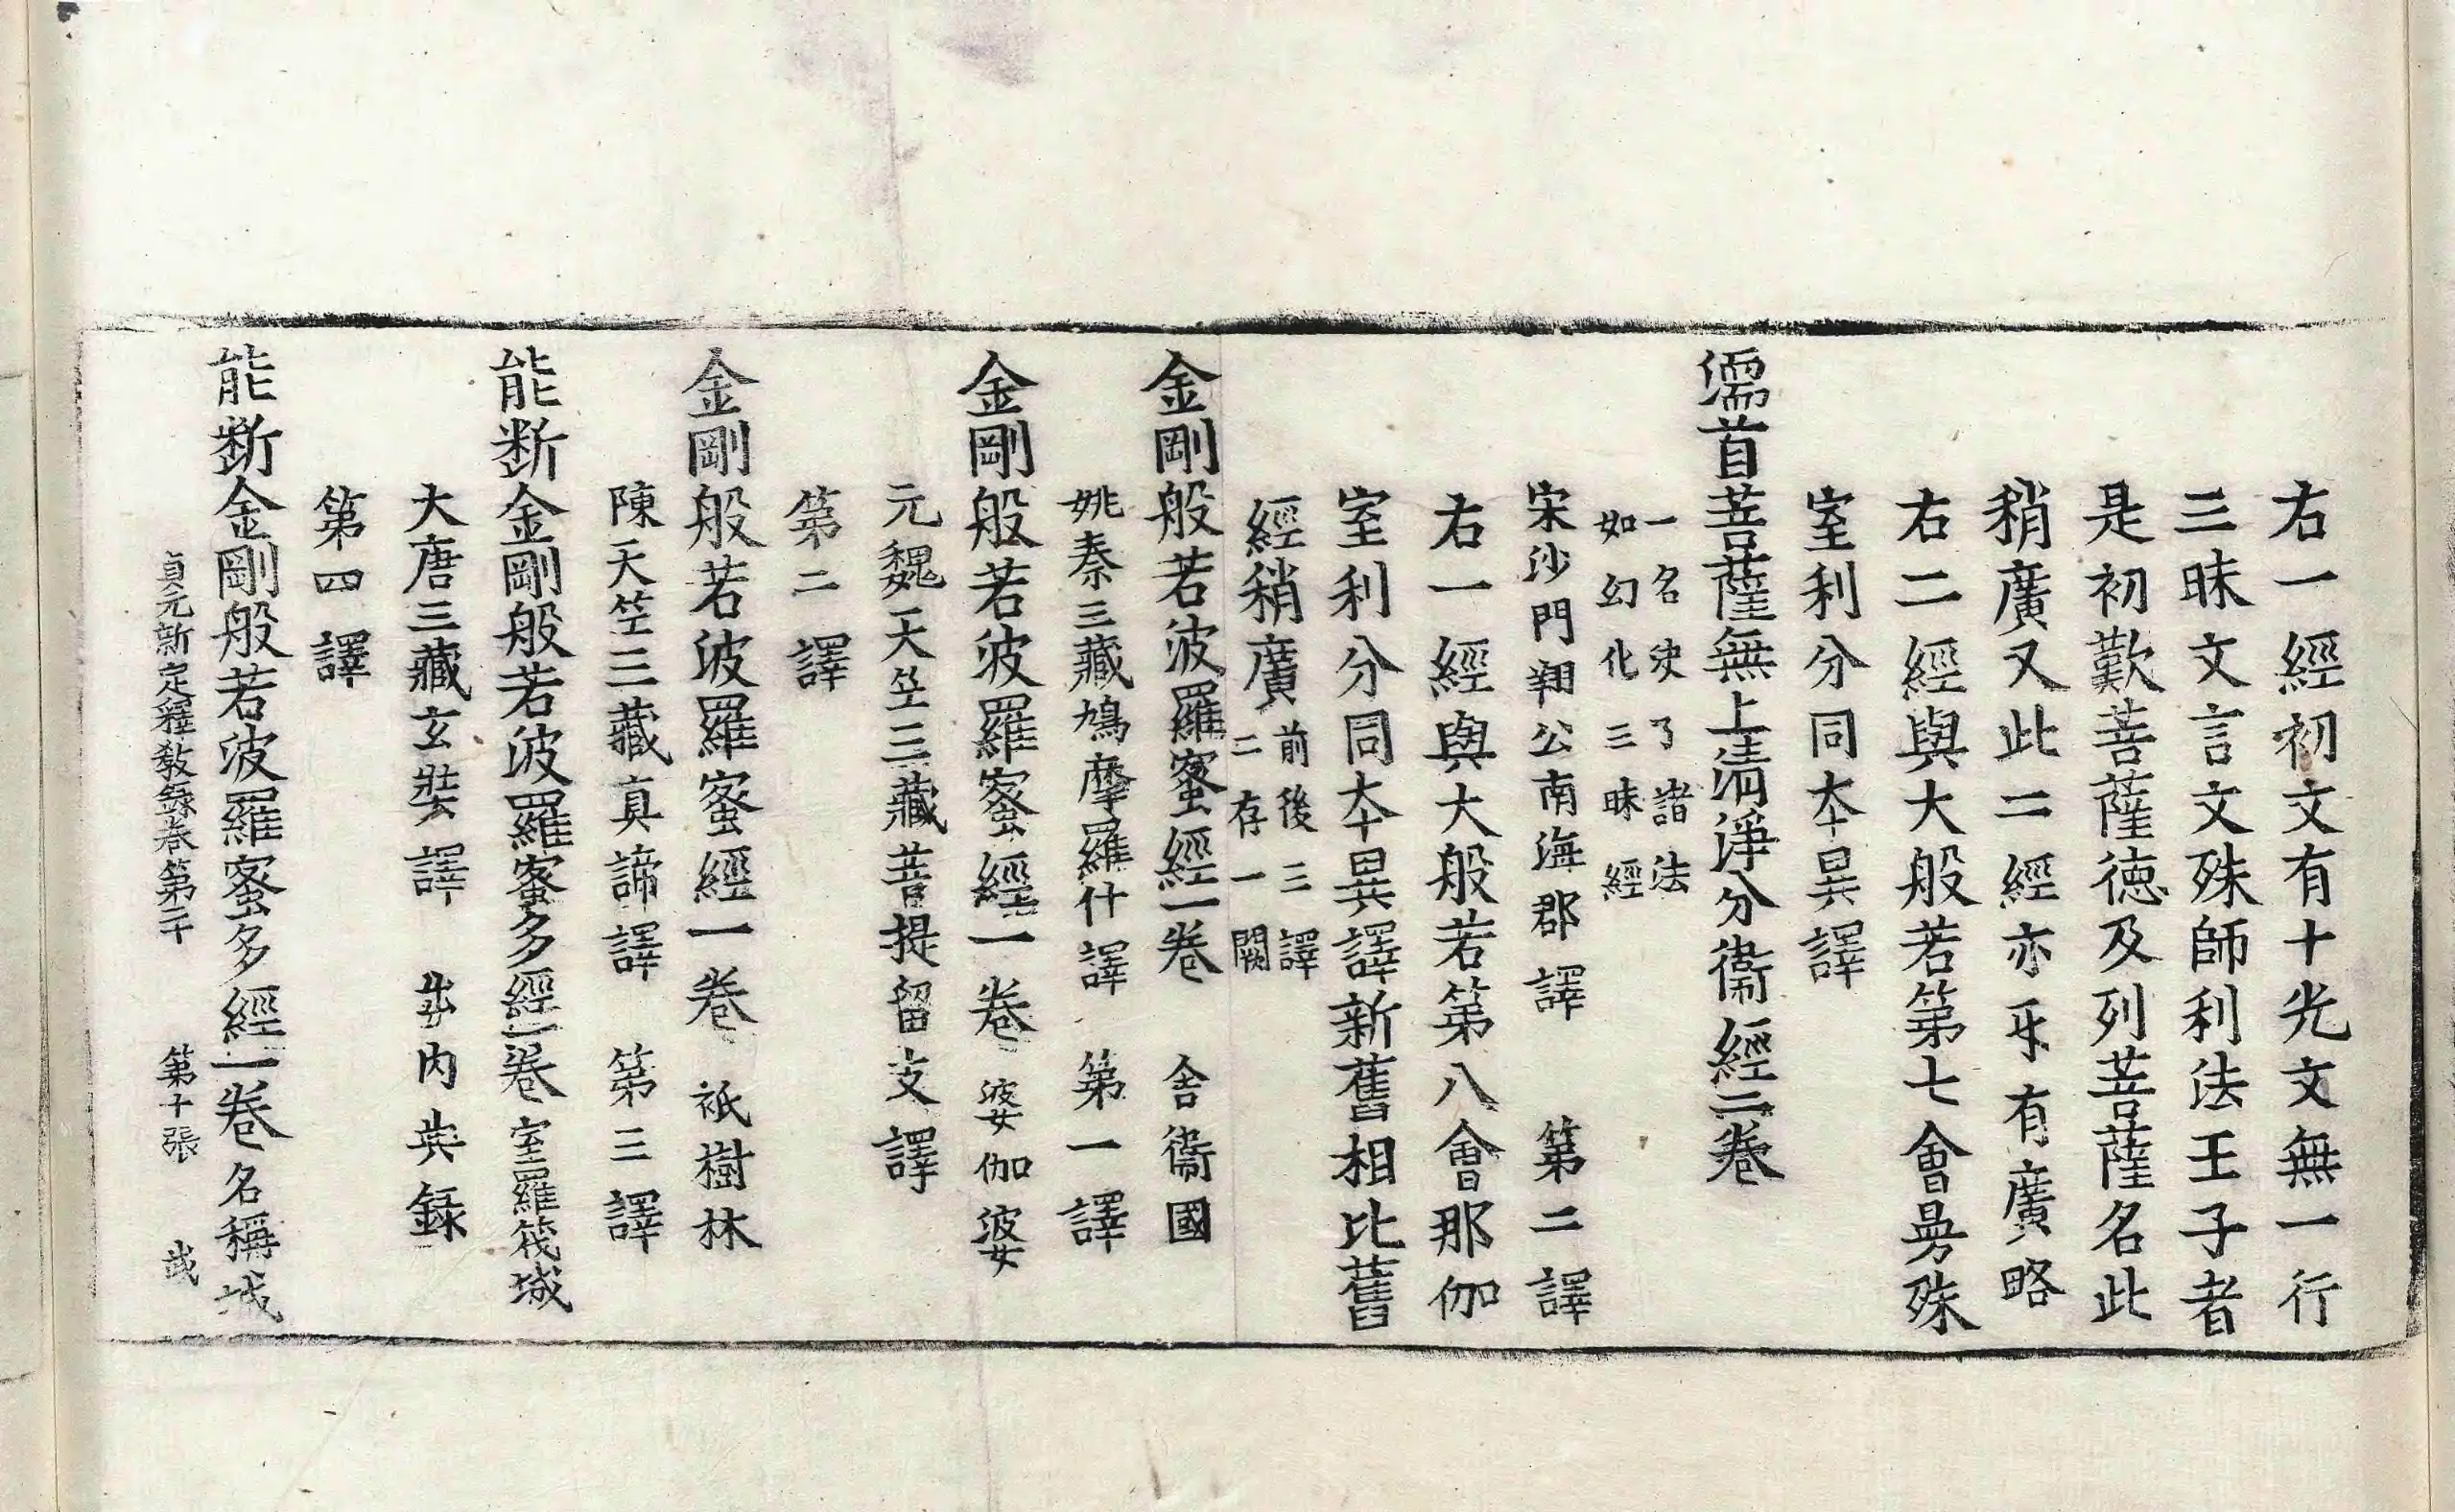 右一經初文有十光文無一行
三昧文言文殊師利法王子者
是初歎菩薩德及列菩薩名此
稍廣又此二經亦㸦有廣略
右二經與大般若第七會曼殊
室利分同本異譯
濡首菩薩無上清淨分衞經二卷
一名決了諸法
如幻化三昧經
宋沙門翔公南海郡譯 第二譯
右一經與大般若第八會那伽
室利分同本異譯新舊相比舊
經稍廣
前後三譯
二存一闕
金剛般若波羅蜜經一卷 舍衞國
姚秦三藏鳩摩羅什譯 第一譯
金剛般若波羅蜜經一卷 婆伽婆
元魏天竺三藏菩提留支譯
第二譯
金剛般若波羅蜜經一卷 祇樹林
陳天竺三藏真諦譯 第三譯
能断金剛般若波羅蜜多經一卷 室羅筏城
大唐三藏玄奘譯 出内典録
第四譯
能断金剛般若波羅蜜多經一卷 名稱城
貞元新定釋教録卷第二十 第十張